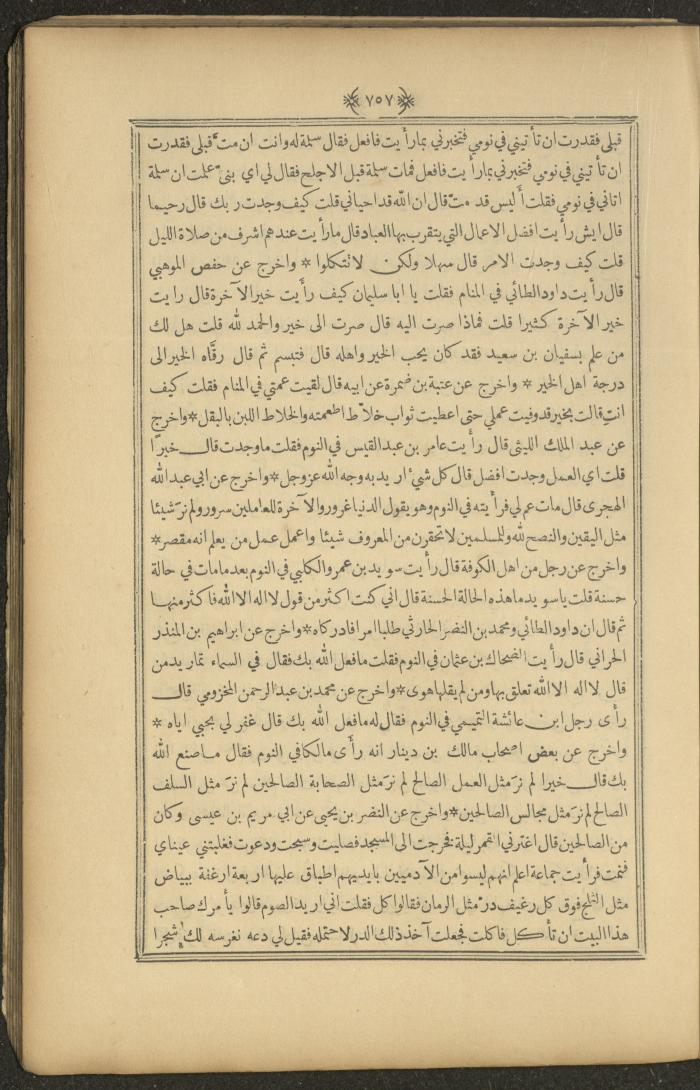 ٧٥٧
قبلى فقدرت ان تأتيني في نومي فتخبرني بمارأيت فافعل فقال سلمة له وانت ان متّ قبلى فقدرت
ان تأتيني في نومي فتخبرني بمارأيت فافعل فمات سلمة قبل الاجلح فقال لي اي بنىّ علمت ان سلمة
اتاني في نومي فقلت أليس قد متّ قال ان الله قد احياني قلت كيف وجدت ربك قال رحيما
قال ايش رأيت افضل الاعمال التي يتقرب بها العباد قال مارأيت عندهم اشرف من صلاة الليل
قلت كيف وجدت الامر قال سهلا ولكن لا تتكلوا * واخرج عن حفص الموهبي
قال رأيت داود الطائي في المنام فقلت يا ابا سليمان كيف رأيت خير الآخرة قال رايت
خير الآخرة كثيرا قلت فماذا صرت اليه قال صرت الى خير والحمد لله قلت هل لك
من علم بسفيان بن سعيد فقد كان يحب الخير واهله قال فتبسم ثم قال رقّاه الخير الى
درجة اهل الخير * واخرج عن عتبة بن ضمرة عن ابيه قال لقيت عمتي في المنام فقلت كيف
انتِ قالت بخير قد وفيت عملي حتى اعطيت ثواب خلّاط اطعمته والخلاط اللبن بالبقل * واخرج
عن عبد الملك الليثى قال رأيت عامر بن عبد القيس في النوم فقلت ما وجدت قال خيرًا
قلت اي العمل وجدت افضل قال كل شيء اريد به وجه الله عز وجل * واخرج عن ابي عبد الله
الهجرى قال مات عم لي فرأيته في النوم وهو يقول الدنيا غرور والآخرة للعاملين سرور ولم نرَ شيئا
مثل اليقين والنصح لله وللمسلمين لا تحقرن من المعروف شيئا واعمل عمل من يعلم انه مقصر *
واخرج عن رجل من اهل الكوفة قال رأيت سويد بن عمرو الكلبي في النوم بعد مامات في حالة
حسنة قلت ياسويد ما هذه الحالة الحسنة قال اني كنت اكثر من قول لا اله الا الله فاكثر منها
ثم قال ان داود الطائي ومحمد بن النضر الحارثي طلبا امرا فادركاه * واخرج عن ابراهيم بن المنذر
الحراني قال رأيت الضحاك بن عثمان في النوم فقلت مافعل الله بك فقال في السماء تماريد من
قال لا اله الا الله تعلق بها ومن لم يقلها هوى * واخرج عن محمد بن عبد الرحمن المخزومي قال
رأى رجل ابن عائشة التميمي في النوم فقال له مافعل الله بك قال غفر لي بحبي اياه *
واخرج عن بعض اصحاب مالك بن دينار انه رأى مالكا في النوم فقال ماصنع الله
بك قال خيرا لم نرَ مثل العمل الصالح لم نرَ مثل الصحابة الصالحين لم نرَ مثل السلف
الصالح لم نرَ مثل مجالس الصالحين * واخرج عن النضر بن يحيى عن ابي مريم بن عيسى وكان
من الصالحين قال اغترني القمر ليلة فخرجت الى المسجد فصليت وسبحت ودعوت فغلبتني عيناي
فنمت فرأيت جماعة اعلم انهم ليسوا من الآدميين بايديهم اطباق عليها اربعة ارغفة ببياض
مثل الثلج فوق كل رغيف درّ مثل الرمان فقالوا كل فقلت اني اريد الصوم قالوا يأمرك صاحب
هذا البيت ان تأكل فاكلت فجعلت آخذ ذلك الدر لاحتمله فقيل لي دعه نغرسه لك شجرا